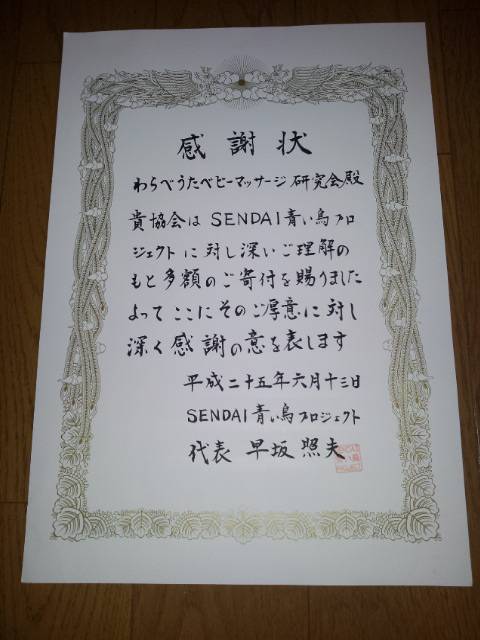 感謝状
わらべうたベビーマッサージ研究会殿
貴協会はSENDAI青い鳥プロ
ジェクトに対し深いご理解の
もと多額のご寄付を賜りました
よってここにそのご厚意に対し
深く感謝の意を表します
平成二十五年六月十三日
SENDAI青い鳥プロジェクト
代表 早坂 照夫